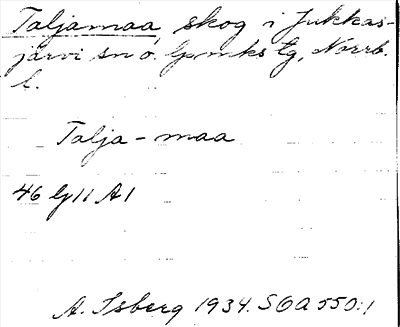 Taljamaa, skog i Jukkas-
järvi sn o. lpmks tg, Norrb.
l.
Talja-maa
46 lg II A1
A. Isberg 1934. SOA 550:1